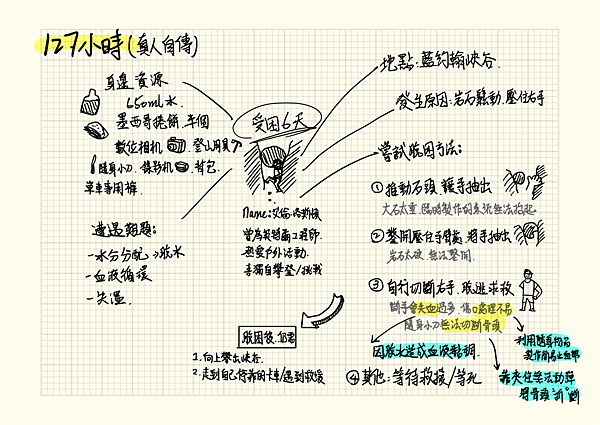 127小時(真人自傳)
身邊資源
650ml水
墨西哥捲餅 半個
數位相機 登山用具
隨身小刀 錄影机 背包
單車專用褲
遭遇難題:
-水分分配→脫水
-血液循環
-失溫
受困6天
Name:艾倫
曾為英特爾工程師
熱愛戶外活動
喜獨自攀登/挑戰
地點:藍約翰峽谷
發生原因:岩石鬆動 壓住右手
嘗試脫困方法:
①推動石頭 讓手抽出
大石太重 臨時製作的系統無法抬起
②鑿開壓住手間處 將手抽出
岩石太硬 無法鑿開
③自行切斷右手 脫逃求救
斷手會失血過多 傷口處理不易
隨身小刀無法切斷骨頭
利用隨身物品
製作簡易止血帶
因脫水造成血液黏稠
靠夾住無法動彈
將骨頭"折"斷
④其他:等待救援/等死
脫困後
1.向上攀出峽谷
2.走到自己停靠的卡車/遇到救援